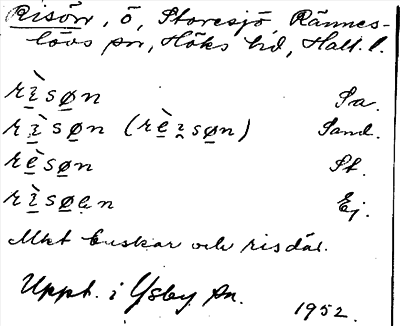 Risörr, ö, Storesjö, Rännes-
lövs sn, Höks hd, Hall. l.
rìsøn Sa.
rìsøn (rèısøn) Sand.
rèsøn St.
rìsøen Ej.
Mkt buskar och ris där.
Uppt. i Ysby sn.
1952.